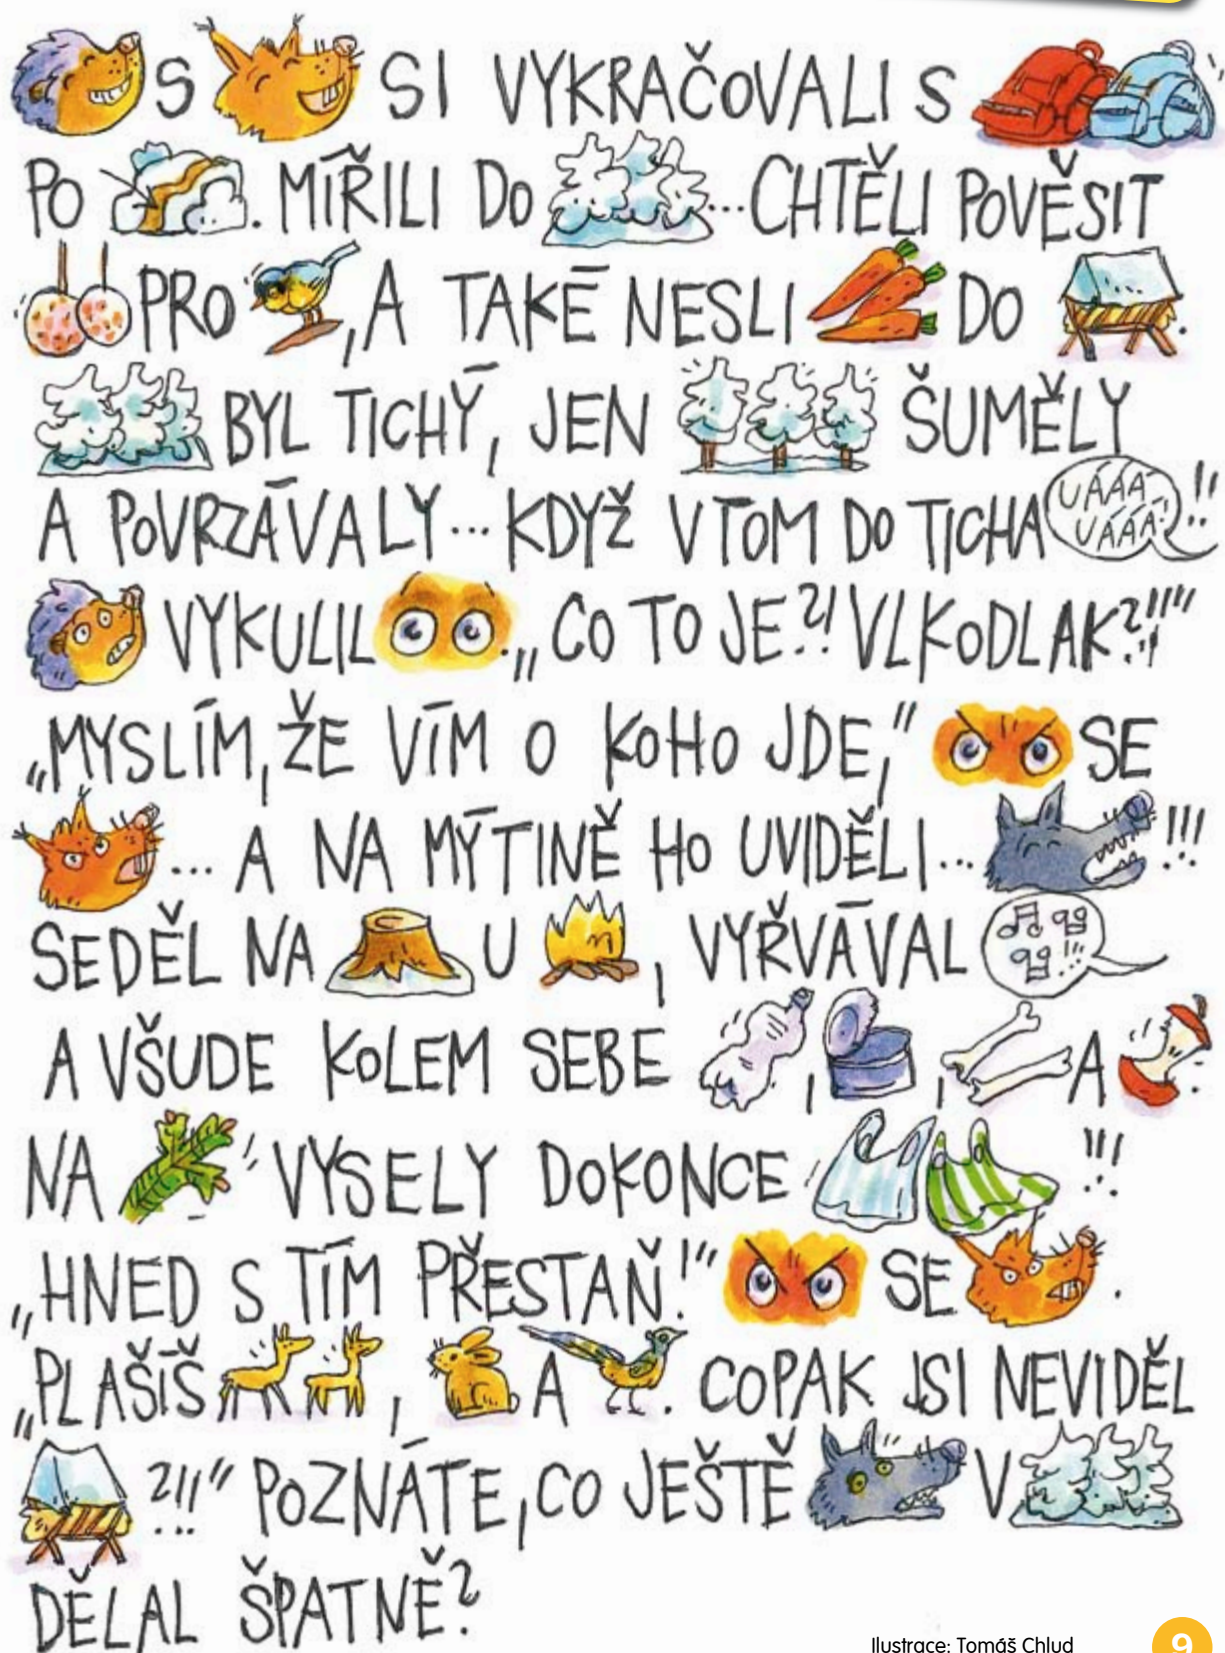 S SI VYKRAČOVALI S
PO . MÍŘILI DO ...CHTĚLI POVĚSIT
PRO , A TAKÉ NESLI DO .
BYL TICHÝ, JEN ŠUMĚLY
A POVRZÁVALY... KDYŽ VTOM DO TICHA UÁÁÁ UÁÁÁ!!!
VYKULIL . „CO TO JE?! VLKODLAK?!!"
„MYSLÍM, ŽE VÍM O KOHO JDE," SE
... A NA MÝTINĚ HO UVIDĚLI... !!!
SEDĚL NA U , VYŘVÁVAL
A VŠUDE KOLEM SEBE , , A .
NA VYSELY DOKONCE !!!
„HNED S TÍM PŘESTAŇ!" SE .
„PLAŠÍŠ , A . COPAK JSI NEVIDĚL
?!!" POZNÁTE, CO JEŠTĚ V
DĚLAL ŠPATNĚ?
Ilustrace: Tomáš Chlud
9